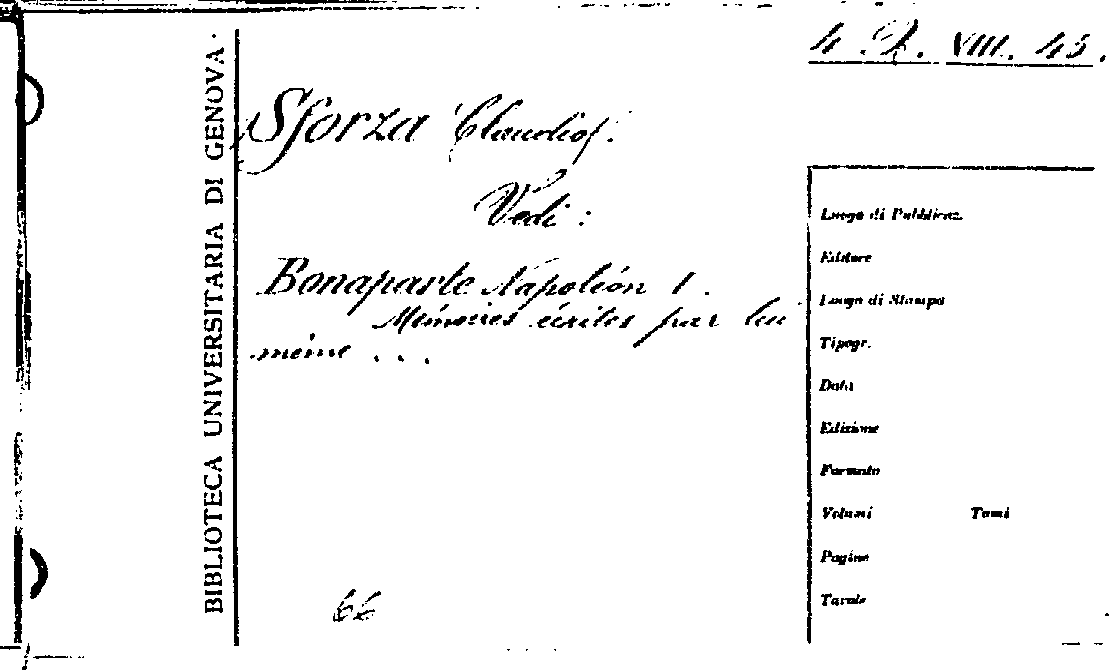 4 R. VIII. 45.
BIBLIOTECA UNIVERSITARIA DI GENOVA.
Sforza Claudio.
Vedi:
Bonaparte Napoléon I.
Mémoires écrites par lui
même ...
Luogo di Pubblicaz.
Editore
Luogo di Stampa
Tipogr.
Data
Edizione
Formato
Volumi Tomi
Pagine
Tavole
66